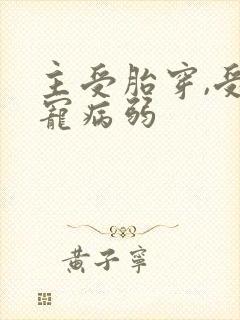 主受胎穿,受
寵病弱
黄子寧